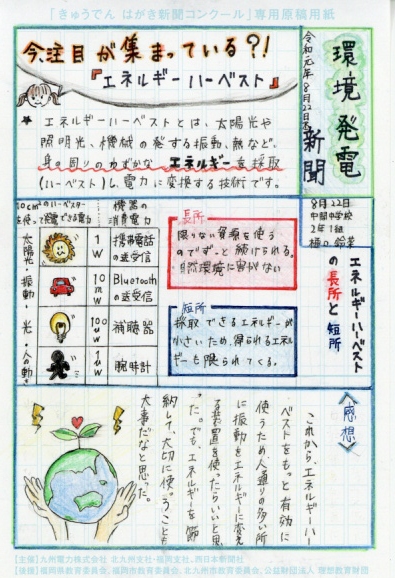 「きゅうでん はがき新聞コンクール」専用原稿用紙
環境発電
新聞
令和元年8月22日木
今、注目が集まっている?!
『エネルギーハーベスト』
★エネルギーハーベストとは、太陽光や
照明光、機械の発する振動、熱など、
身の周りのわずかなエネルギーを採取
(ハーベスト)し、電力に変換する技術です。
8月22日
中間中学校
2年1組
エネルギーハーベスト
の長所と短所
10cm²のハーベスター
を使って発電できる電力
機器の
消費電力
太陽光・振動・光・人の動き
1W
携帯電話
の送受信
10mW
Bluetooth
の送受信
100uW
補聴器
1uW
腕時計
長所
限りない資源を使う
のでずっと続けられる。
自然環境に害がない
短所
採取できるエネルギーが
小さいため、得られるエネル
ギーも限られてくる。
〈感想〉
これから、エネルギーハー
ベストをもっと有効に
使うため、人通りの多い所
に振動をエネルギーに変え
る装置を使ったらいいと思
った。でも、エネルギーを節
約して、大切に使うことも
大事だなと思った。
【主催】九州電力株式会社 北九州支社・福岡支社、西日本新聞社
【後援】福岡県教育委員会、福岡市教育委員会、北九州市教育委員会、公益財団法人 理想教育財団